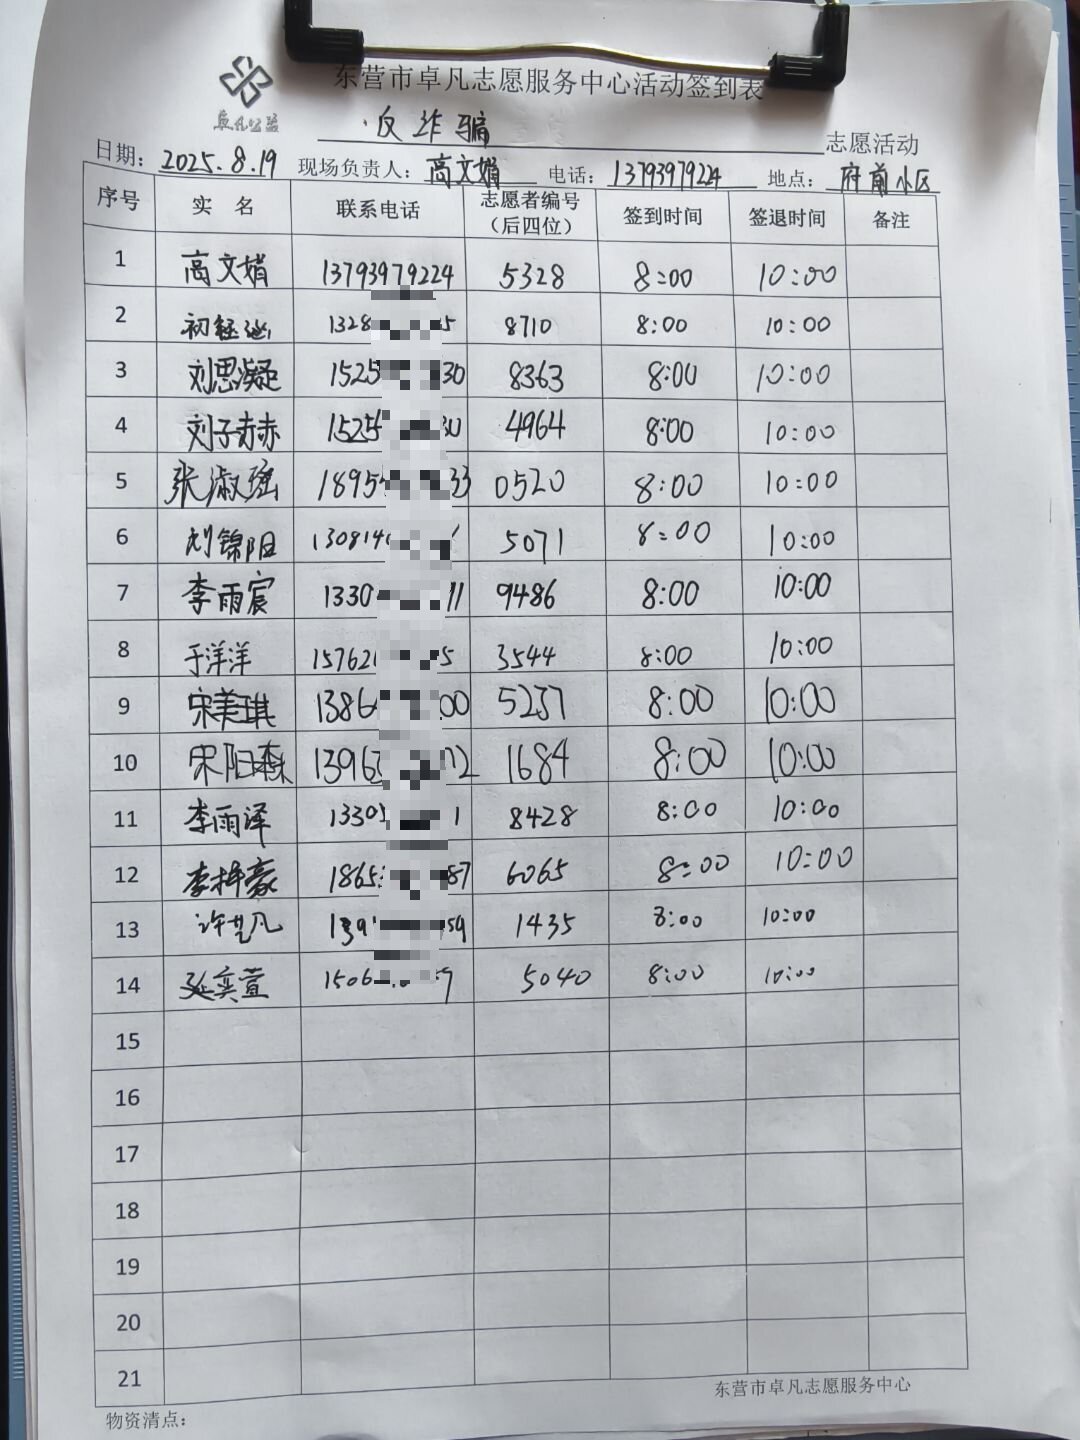 东营市卓凡志愿服务中心活动签到表
卓凡公益
反诈骗 志愿活动
日期：2025.8.19 现场负责人：高文娟 电话：13793979224 地点：府前小区
序号 实 名 联系电话 志愿者编号（后四位） 签到时间 签退时间 备注
1 高文娟 13793979224 5328 8:00 10:00
2 1328 5 8710 8:00 10:00
3 刘思凝 1525 30 8363 8:00 10:00
4 刘子赫 1525 30 4964 8:00 10:00
5 张淑瑶 1895 33 0520 8:00 10:00
6 刘锦阳 130814 5071 8:00 10:00
7 李雨宸 1330 11 9486 8:00 10:00
8 于洋洋 15762 5 3544 8:00 10:00
9 宋美琪 1386 00 5237 8:00 10:00
10 宋阳森 1396 2 1684 8:00 10:00
11 李雨泽 1330 1 8428 8:00 10:00
12 李梓豪 1865 87 6065 8:00 10:00
13 许艺凡 139 59 1435 8:00 10:00
14 延奕萱 1506 9 5040 8:00 10:00
15
16
17
18
19
20
21
东营市卓凡志愿服务中心
物资清点：